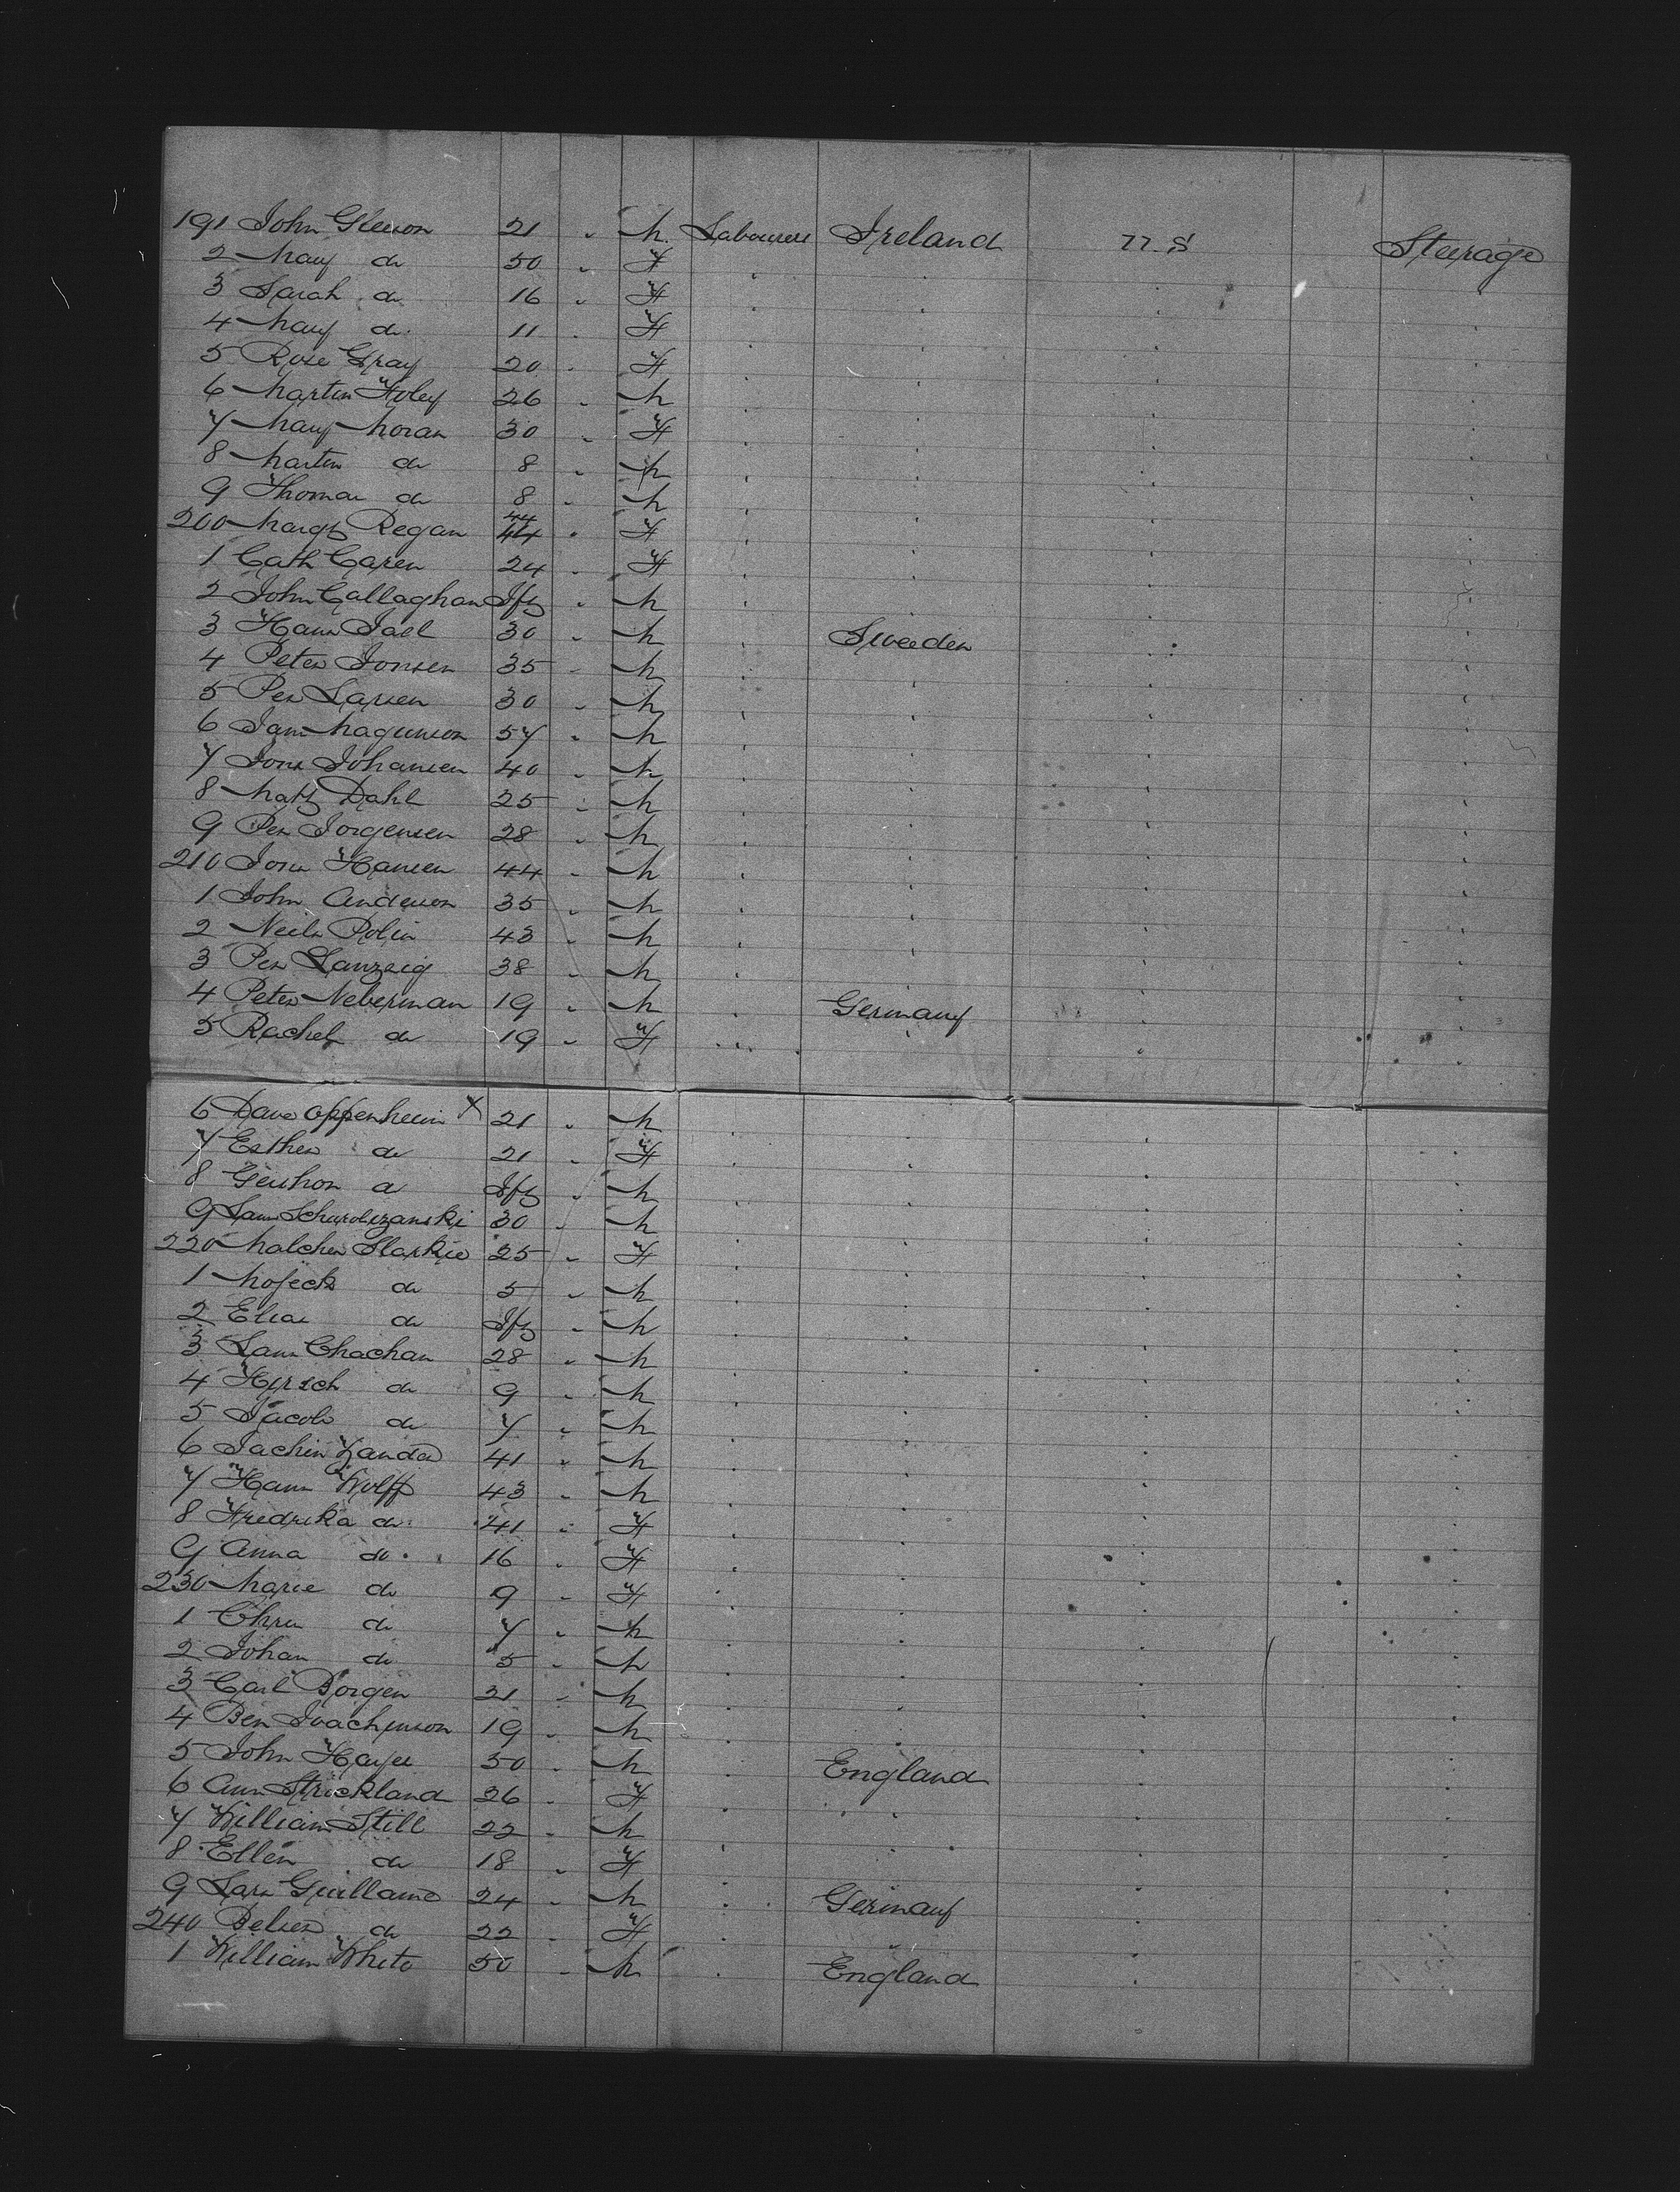 191 John Gleeson 21 " M. Labourers Ireland U.S Steerage
2 Mary do 50 " F
3 Sarah do 16 " F
4 Mary do 11 " F
5 Rose Gray 20 " F
6 Martin Foley 26 " M
7 Mary Moran 30 " F
8 Martin do 8 " M
9 Thomas do 8 " M
200 Margt Regan 44 " F
1 Cath Caren 24 " F
2 John Callaghan Inft " M
3 Hans 30 " M Sweeden
4 Peter Jonsen 35 " M
5 Per Larsen 30 " M
6 Magunson 57 " M
7 Jons Johansen 40 " M
8 Matts Dahl 25 " M
9 Per Jorgensen 28 " M
210 Jons Hansen 44 " M
1 John Anderson 35 " M
2 Neils Polin 43 " M
3 Per 38 " M
4 Peter Neberman 19 " M Germany
5 Rachel do 19 " F
6 Dave Oppenheim X 21 " M
7 Esther do 21 " F
8 Gershon do Inft " M
9 30 " M
220 Malcher 25 " F
1 do 5 " M
2 Elias do Inft " M
3 Chachan 28 " M
4 Hirsch do 9 " M
5 Jacob do 7 " M
6 41 " M
7 Hans Wolff 43 " M
8 Fredrika do 41 " F
9 Anna do 16 " F
230 Marie do 9 " F
1 Chrn do 7 " M
2 Johan do 5 " M
3 Carl Borgen 21 " M
4 Ben Joachimson 19 " M
5 John Hayes 50 " M England
6 Ann Strickland 26 " F
7 William Still 22 " M
8 Ellen do 18 " F
9 Lars Guillaume 24 " M Germany
240 do 22 " F
1 William White 50 " M England